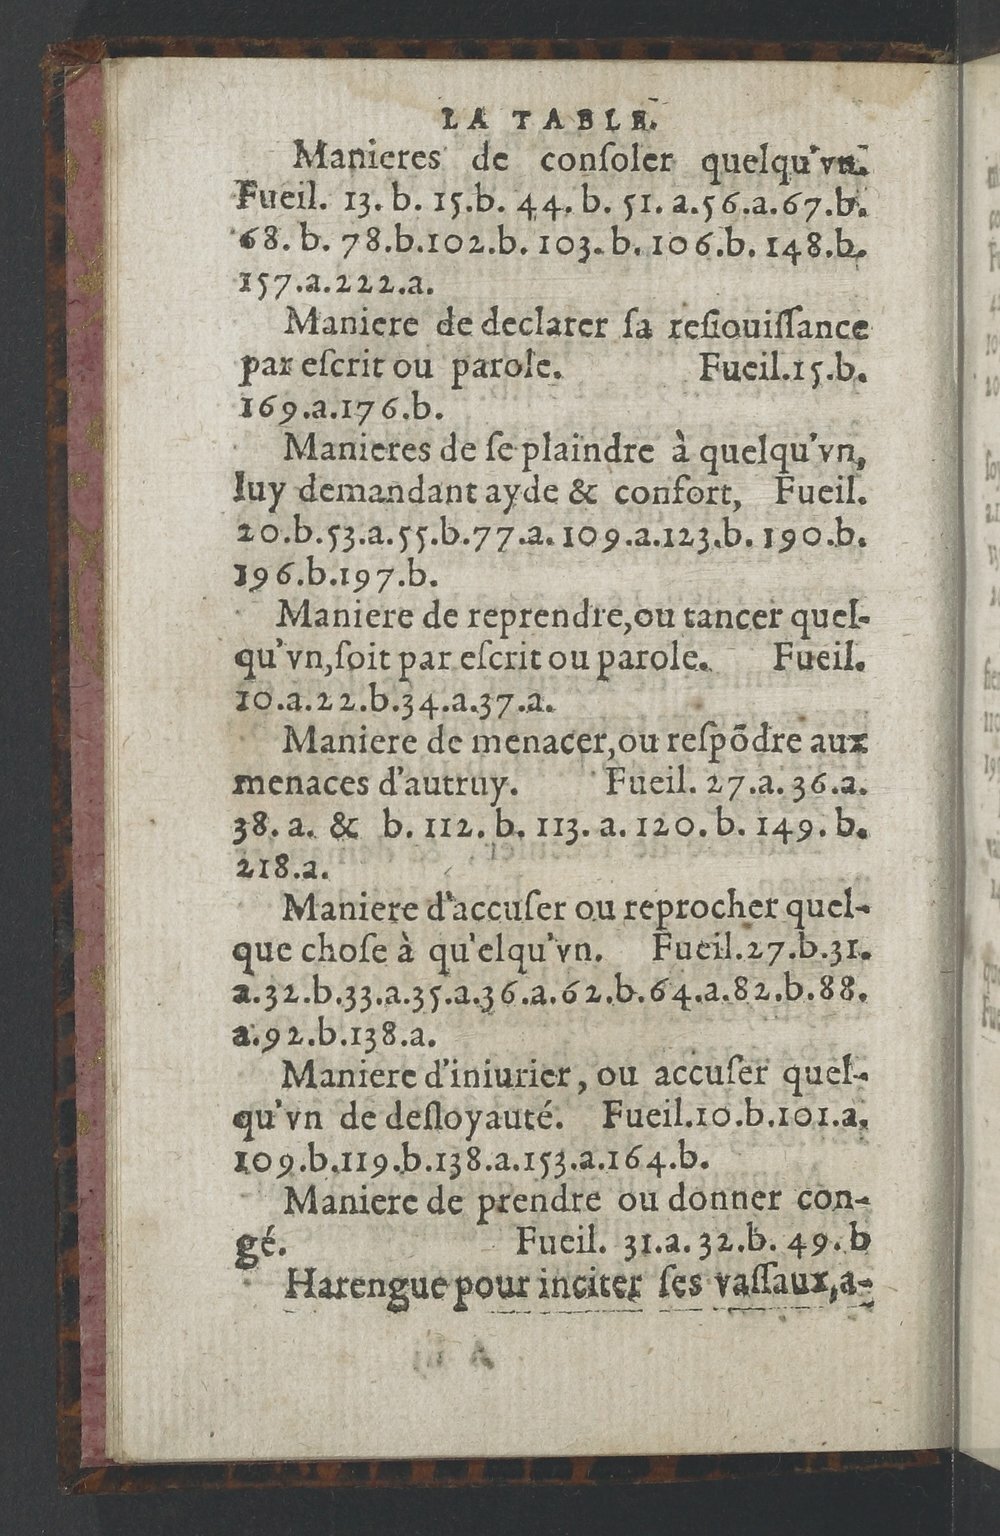 LA TABLE.
Manieres de conſoler quelqu'vn.
Fueil. 13. b. 15.b. 44. b. 51. a.56.a.67.b.
68. b. 78.b.102.b. 103. b. 106.b. 148.b.
157.a.222.a.
Maniere de declarer ſa reſiouiſſance
par eſcrit ou parole. Fueil.15.b.
169.a.176.b.
Manieres de ſe plaindre à quelqu'vn,
luy demandant ayde & confort, Fueil.
20.b.53.a.55.b.77.a.109.a.123.b.190.b.
196.b.197.b.
Maniere de reprendre,ou tancer quel-
qu'vn,ſoit par eſcrit ou parole. Fueil.
10.a.22.b.34.a.37.a.
Maniere de menacer,ou reſpōdre aux
menaces d'autruy. Fueil. 27.a. 36.a.
38. a. & b. 112. b. 113. a. 120. b. 149. b.
218.a.
Maniere d'accuſer ou reprocher quel-
que choſe à qu'elqu'vn. Fueil.27.b.31.
a.32.b.33.a.35.a.36.a.62.b.64.a.82.b.88.
a.92.b.138.a.
Maniere d'iniurier, ou accuſer quel-
qu'vn de deſloyauté. Fueil.10.b.101.a.
109.b.119.b.138.a.153.a.164.b.
Maniere de prendre ou donner con-
gé. Fueil. 31.a. 32.b. 49. b
Harengue pour inciter ſes vaſſaux,a-